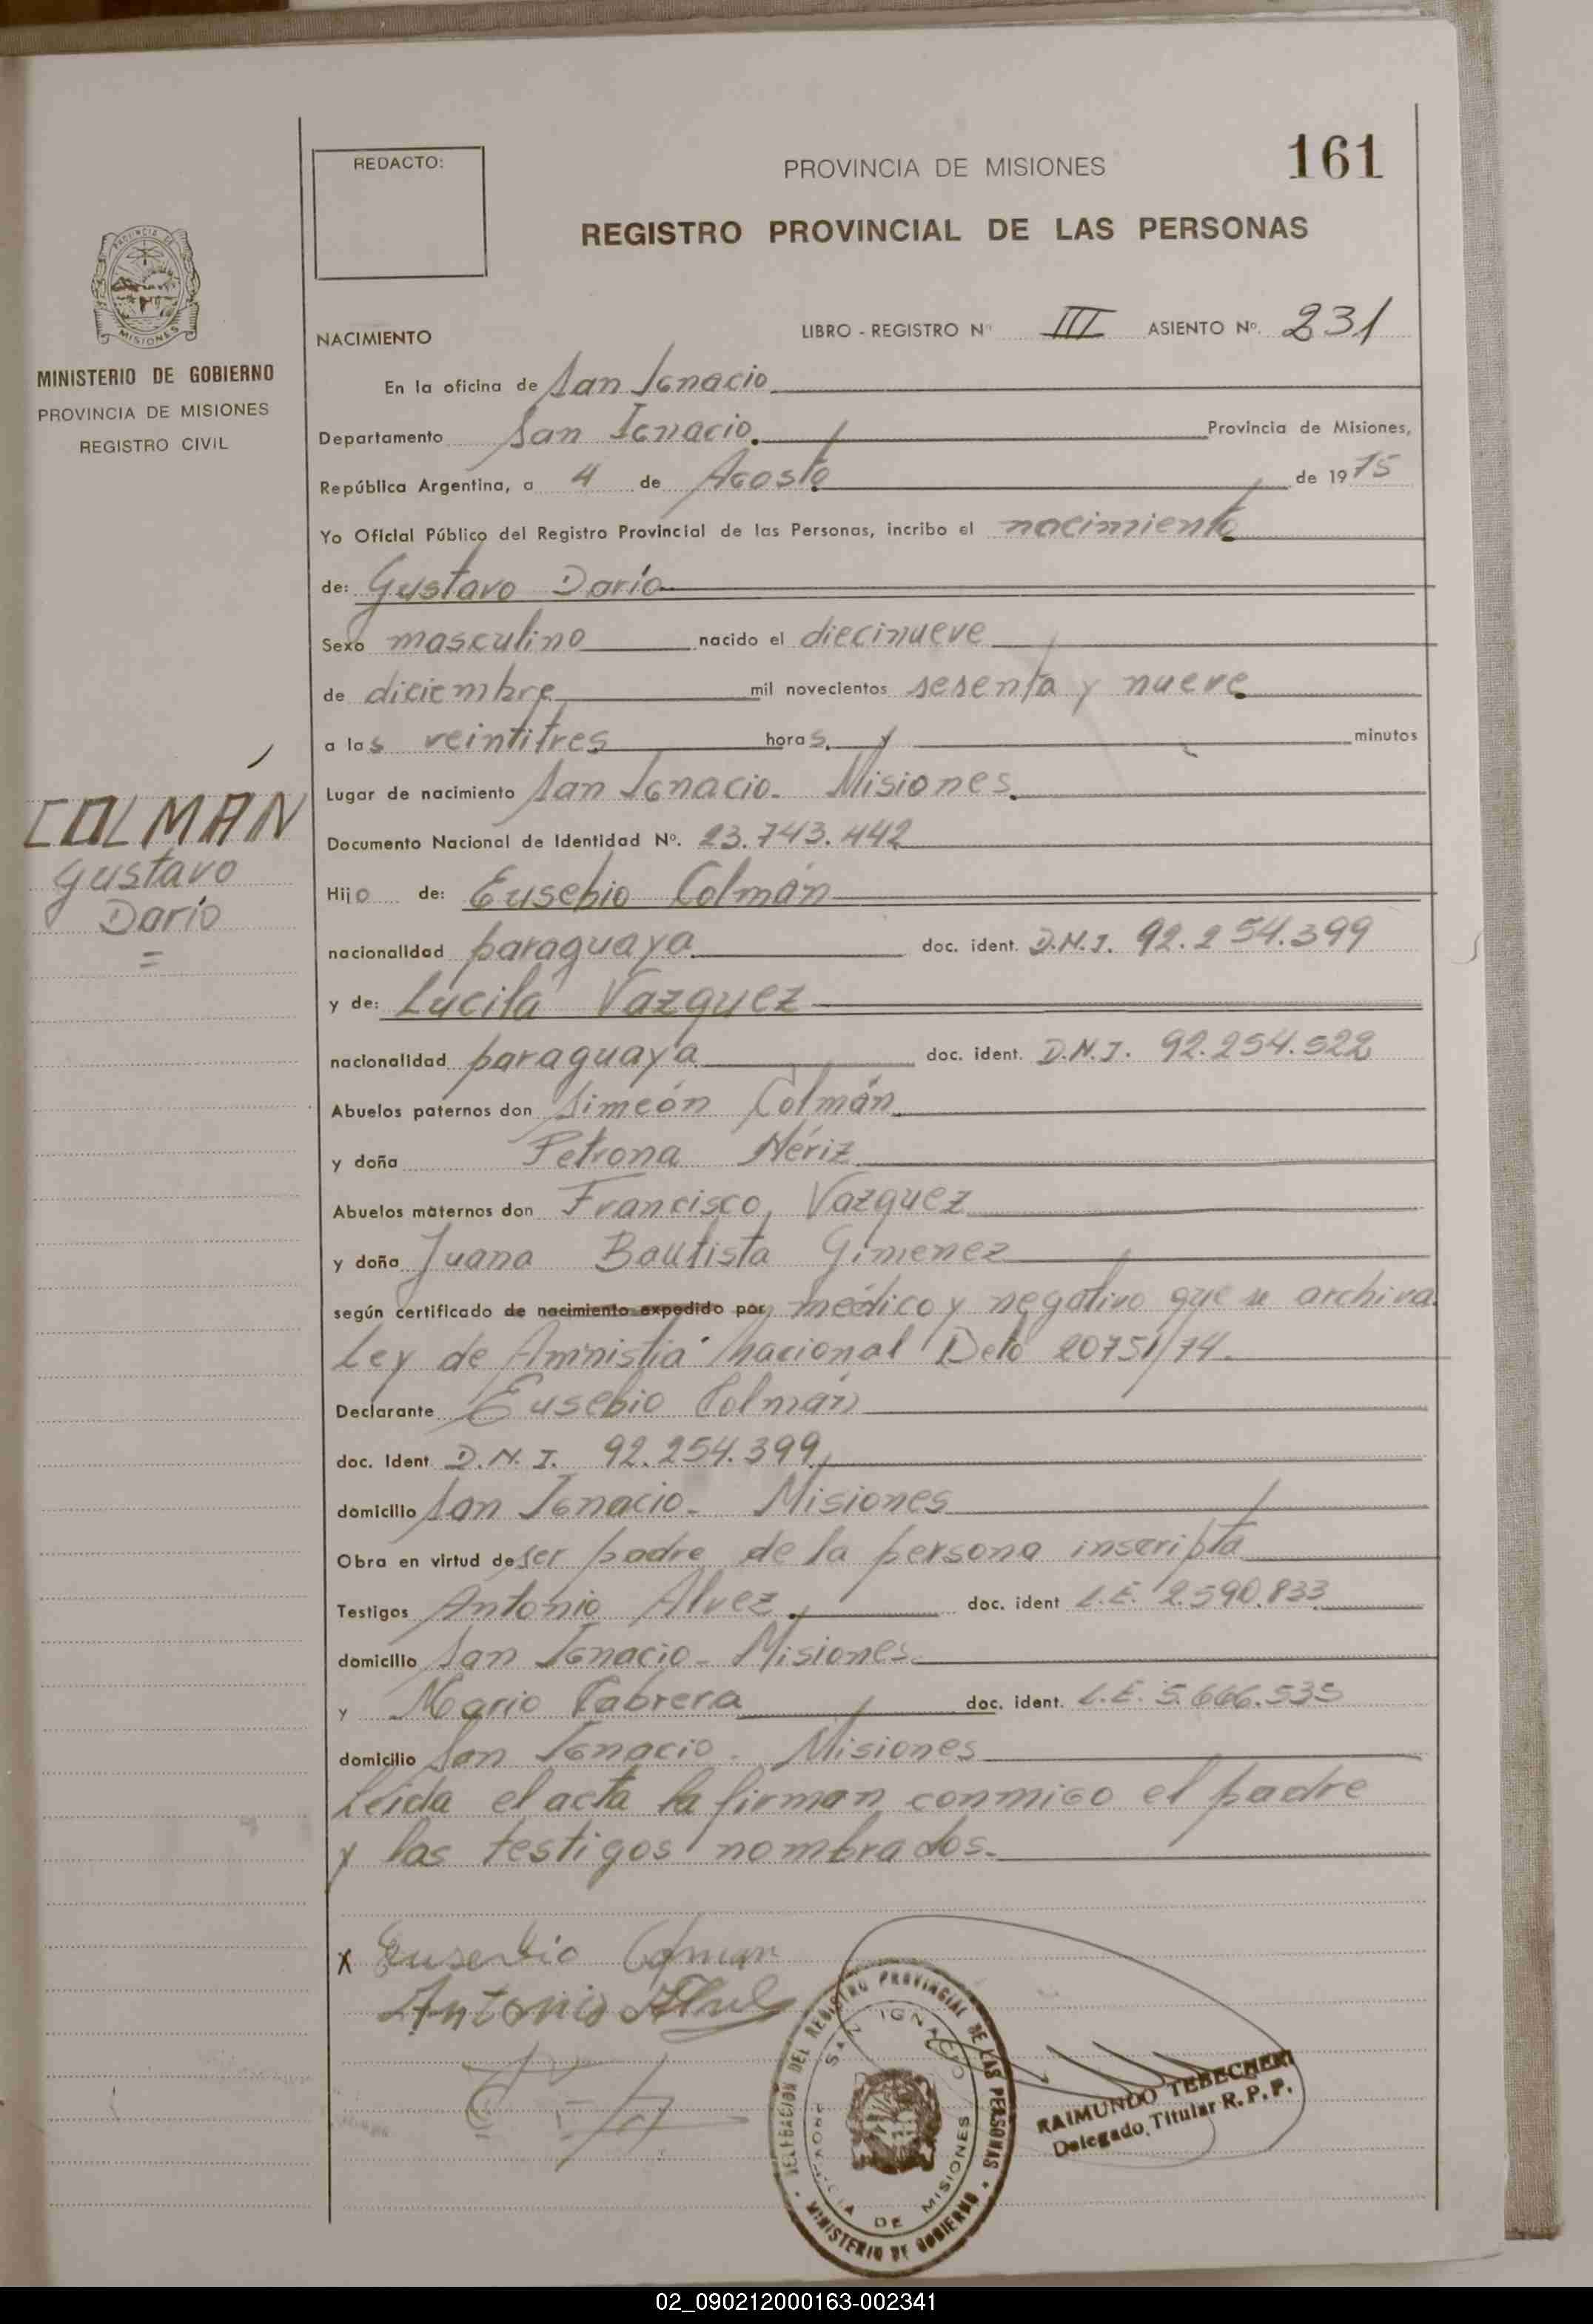 161
REDACTO:
PROVINCIA DE MISIONES
REGISTRO PROVINCIAL DE LAS PERSONAS
PROVINCIA DE
MISIONES
MINISTERIO DE GOBIERNO
PROVINCIA DE MISIONES
REGISTRO CIVIL
NACIMIENTO LIBRO - REGISTRO Nº III ASIENTO Nº. 231
En la oficina de San Ignacio
Departamento San Ignacio. Provincia de Misiones,
República Argentina, a 4 de Agosto de 1975
Yo Oficial Público del Registro Provincial de las Personas, incribo el nacimiento
de: Gustavo Darío
Sexo masculino nacido el diecinueve
de diciembre mil novecientos sesenta y nueve
a las veintitres horas. y minutos
Lugar de nacimiento San Ignacio. Misiones.
Documento Nacional de Identidad Nº. 23.743.442
COLMÁN
Gustavo
Darío
=
Hijo de: Eusebio Colmán
nacionalidad paraguaya doc. ident. D.N.I. 92.254.399
y de: Lucila Vazquez
nacionalidad paraguaya doc. ident. D.N.I. 92.254.522
Abuelos paternos don Simeón Colmán
y doña Petrona Nériz
Abuelos maternos don Francisco Vazquez
y doña Juana Bautista Gimenez
según certificado de nacimiento expedido por médico y negativo que se archiva.
Ley de Amnistia nacional Dcto 20751/74.
Declarante Eusebio Colmán
doc. Ident D.N.I. 92.254.399
domicilio San Ignacio- Misiones
Obra en virtud de ser padre de la persona inscripta
Testigos Antonio Alvez. doc. ident L.E. 2.590.833
domicilio San Ignacio- Misiones
y Mario Cabrera doc. ident. L.E. 5.666.535
domicilio San Ignacio. Misiones
Leida el acta la firman conmigo el padre
y los testigos nombrados.
x Eusevio Colman
Antonio
DELEGACION DEL REGISTRO PROVINCIAL DE LAS PERSONAS
SAN IGNACIO
PROVINCIA DE MISIONES
MINISTERIO DE GOBIERNO
RAIMUNDO TEBECHERI
Delegado Titular R. P. P.
02_090212000163-002341